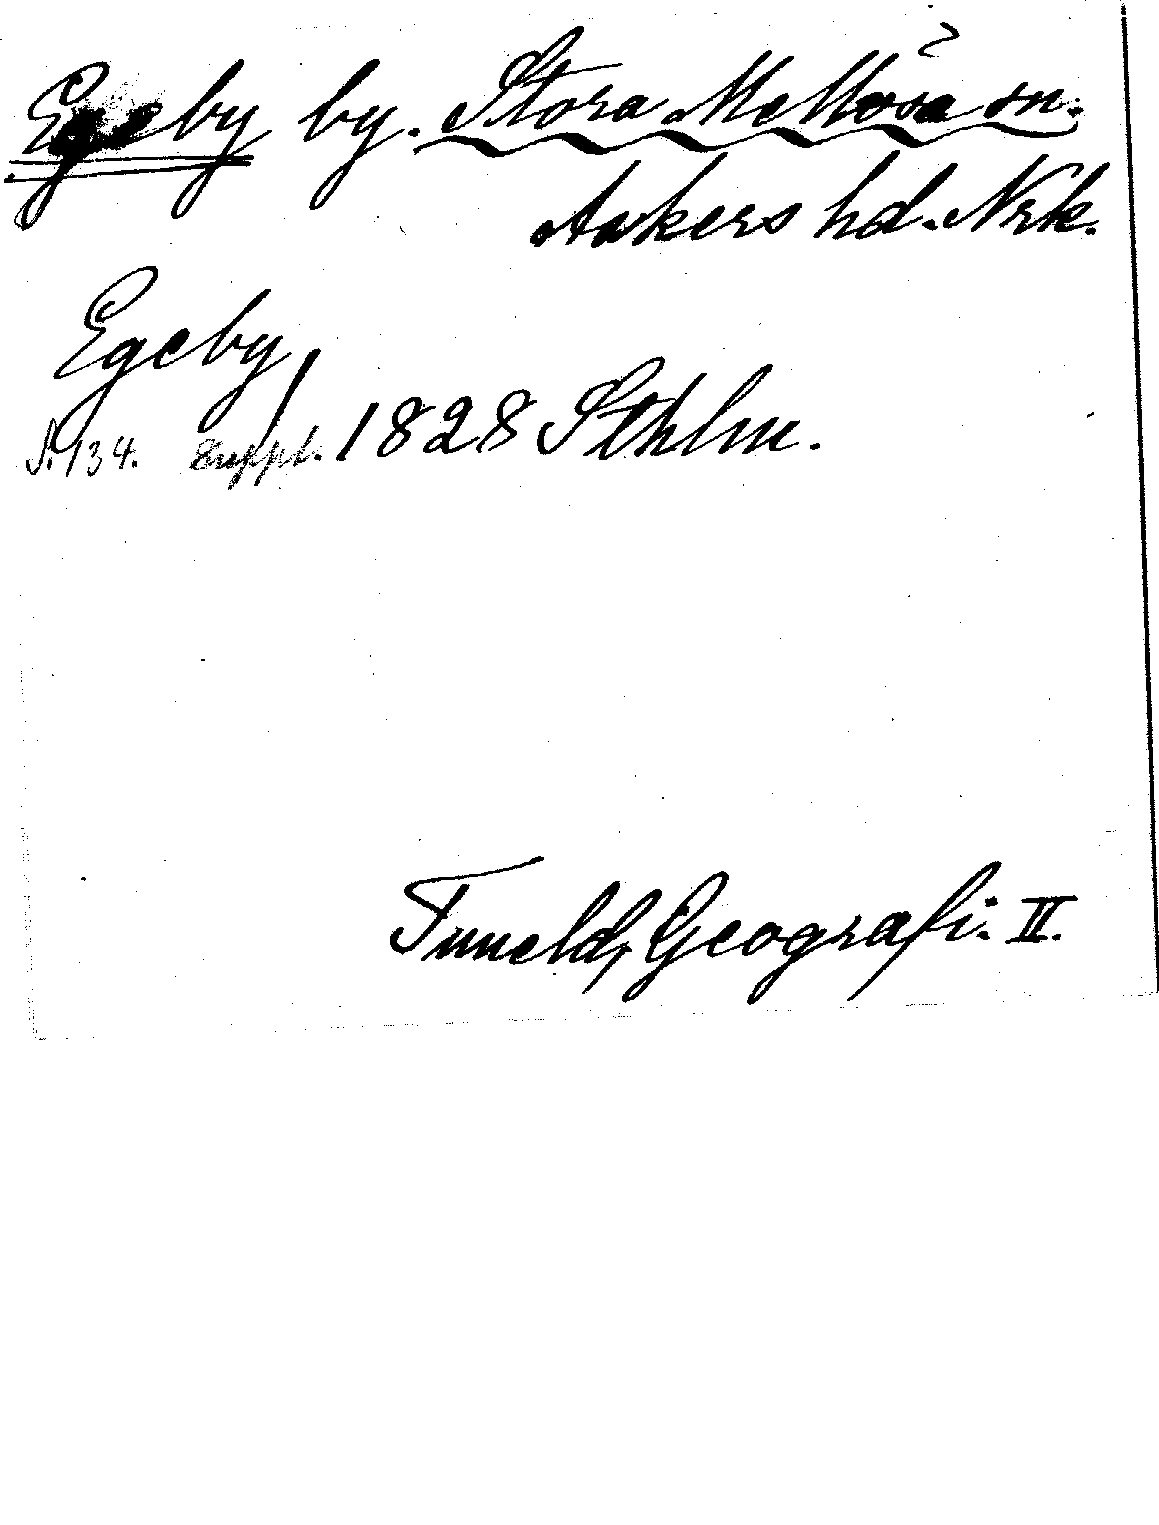 Egeby by. Stora Mellösa sn.
Askers hd. Nrk.
Egeby
S. 134. Suppl. 1828 Sthlm.
Tuneld, Geografi. II.